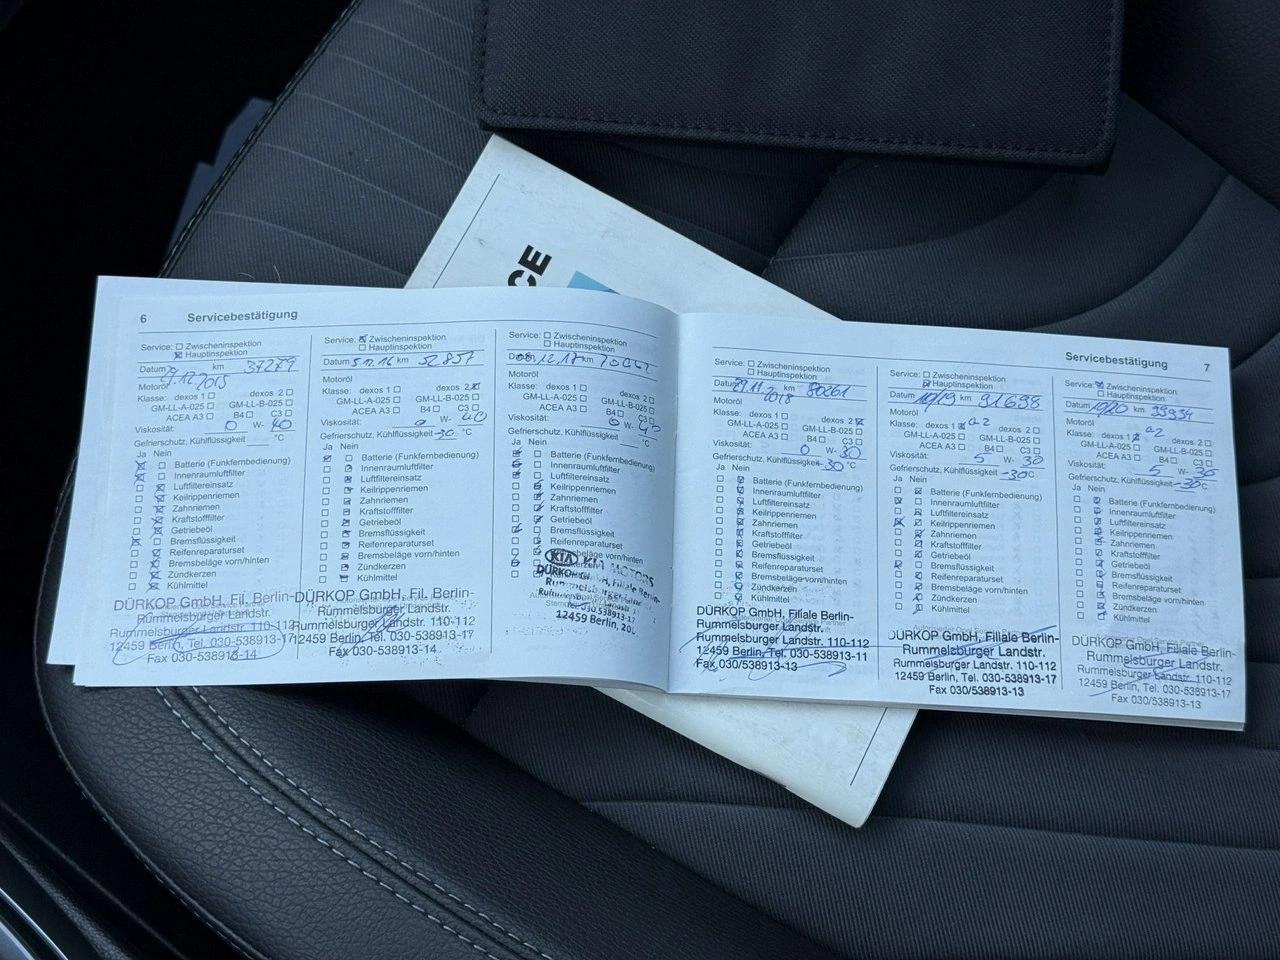 CE
6 Servicebestätigung
Service: Zwischeninspektion
Hauptinspektion
Datum 9.12.2015 km 37279
Motoröl
Klasse: dexos 1 dexos 2
GM-LL-A-025 GM-LL-B-025
ACEA A3 B4 C3
Viskosität: 0 W- 40
Gefrierschutz, Kühlflüssigkeit °C
Ja Nein
Batterie (Funkfernbedienung)
Innenraumluftfilter
Luftfiltereinsatz
Keilrippenriemen
Zahnriemen
Kraftstofffilter
Getriebeöl
Bremsflüssigkeit
Reifenreparaturset
Bremsbeläge vorn/hinten
Zündkerzen
Kühlmittel
DÜRKOP GmbH, Fil. Berlin-
Rummelsburger Landstr.
Rummelsburger Landstr. 110-112
12459 Berlin, Tel. 030-538913-17
Fax 030-538913-14
Service: Zwischeninspektion
Hauptinspektion
Datum 5.12.16 km 52.857
Motoröl
Klasse: dexos 1 dexos 2
GM-LL-A-025 GM-LL-B-025
ACEA A3 B4 C3
Viskosität: 0 W- 40
Gefrierschutz, Kühlflüssigkeit -30 °C
Ja Nein
Batterie (Funkfernbedienung)
Innenraumluftfilter
Luftfiltereinsatz
Keilrippenriemen
Zahnriemen
Kraftstofffilter
Getriebeöl
Bremsflüssigkeit
Reifenreparaturset
Bremsbeläge vorn/hinten
Zündkerzen
Kühlmittel
DÜRKOP GmbH, Fil. Berlin-
Rummelsburger Landstr.
12459 Berlin, Tel. 030-538913-17
Fax 030-538913-14
Service: Zwischeninspektion
Hauptinspektion
Datum 12.17 km
Motoröl
Klasse: dexos 1 dexos 2
GM-LL-A-025 GM-LL-B-025
ACEA A3 B4 C3
Viskosität: 0 W- 40
Gefrierschutz, Kühlflüssigkeit °C
Ja Nein
Batterie (Funkfernbedienung)
Innenraumluftfilter
Luftfiltereinsatz
Keilrippenriemen
Zahnriemen
Kraftstofffilter
Getriebeöl
Bremsflüssigkeit
Reifenreparaturset
Bremsbeläge vorn/hinten
KIA KIA MOTORS
DÜRKOP GmbH, Filiale Berlin-
Rummelsburger Landstr.
12459 Berlin
Servicebestätigung 7
Service: Zwischeninspektion
Hauptinspektion
Datum 29.11.2018 km 80261
Motoröl
Klasse: dexos 1 dexos 2
GM-LL-A-025 GM-LL-B-025
ACEA A3 B4 C3
Viskosität: 0 W- 30
Gefrierschutz, Kühlflüssigkeit -30 °C
Ja Nein
Batterie (Funkfernbedienung)
Innenraumluftfilter
Luftfiltereinsatz
Keilrippenriemen
Zahnriemen
Kraftstofffilter
Getriebeöl
Bremsflüssigkeit
Reifenreparaturset
Bremsbeläge vorn/hinten
Zündkerzen
Kühlmittel
DÜRKOP GmbH, Filiale Berlin-
Rummelsburger Landstr.
Rummelsburger Landstr. 110-112
12459 Berlin, Tel. 030-538913-11
Fax 030/538913-13
Service: Zwischeninspektion
Hauptinspektion
Datum 10/19 km 91698
Motoröl
Klasse: dexos 1 a2 dexos 2
GM-LL-A-025 GM-LL-B-025
ACEA A3 B4 C3
Viskosität: 5 W- 30
Gefrierschutz, Kühlflüssigkeit -30 °C
Ja Nein
Batterie (Funkfernbedienung)
Innenraumluftfilter
Luftfiltereinsatz
Keilrippenriemen
Zahnriemen
Kraftstofffilter
Getriebeöl
Bremsflüssigkeit
Reifenreparaturset
Bremsbeläge vorn/hinten
Zündkerzen
Kühlmittel
DÜRKOP GmbH, Filiale Berlin-
Rummelsburger Landstr.
Rummelsburger Landstr. 110-112
12459 Berlin, Tel. 030-538913-17
Fax 030/538913-13
Service: Zwischeninspektion
Hauptinspektion
Datum 10/20 km 99934
Motoröl
Klasse: dexos 1 a2 dexos 2
GM-LL-A-025 GM-LL-B-025
ACEA A3 B4 C3
Viskosität: 5 W- 30
Gefrierschutz, Kühlflüssigkeit -30 °C
Ja Nein
Batterie (Funkfernbedienung)
Innenraumluftfilter
Luftfiltereinsatz
Keilrippenriemen
Zahnriemen
Kraftstofffilter
Getriebeöl
Bremsflüssigkeit
Reifenreparaturset
Bremsbeläge vorn/hinten
Zündkerzen
Kühlmittel
DÜRKOP GmbH, Filiale Berlin-
Rummelsburger Landstr.
Rummelsburger Landstr. 110-112
12459 Berlin, Tel. 030-538913-17
Fax 030/538913-13